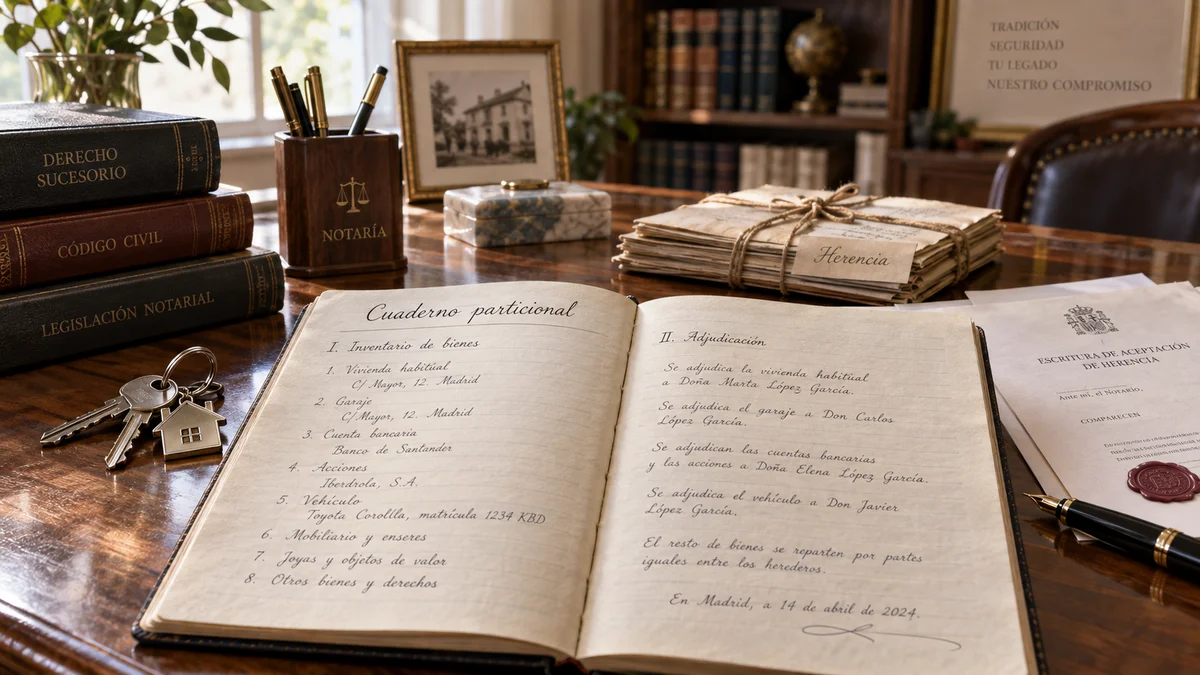 TRADICIÓN
SEGURIDAD
TU LEGADO
NUESTRO COMPROMISO
DERECHO
SUCESORIO
CÓDIGO CIVIL
LEGISLACIÓN NOTARIAL
NOTARÍA
Herencia
Cuaderno particional
I. Inventario de bienes
1. Vivienda habitual
C/ Mayor, 12. Madrid
2. Garaje
C/ Mayor, 12. Madrid
3. Cuenta bancaria
Banco de Santander
4. Acciones
Iberdrola, S.A.
5. Vehículo
Toyota Corollla, matrícula 1234 KBD
6. Mobiliario y enseres
7. Joyas y objetos de valor
8. Otros bienes y derechos
II. Adjudicación
Se adjudica la vivienda habitual
a Doña Marta López García.
Se adjudica el garaje a Don Carlos
López García.
Se adjudican las cuentas bancarias
y las acciones a Doña Elena López García.
Se adjudica el vehículo a Don Javier
López García.
El resto de bienes se reparten por partes
iguales entre los herederos.
En Madrid, a 14 de abril de 2024.
ESCRITURA DE ACEPTACIÓN
DE HERENCIA
Ante mí, el NOTARIO,
COMPARECEN